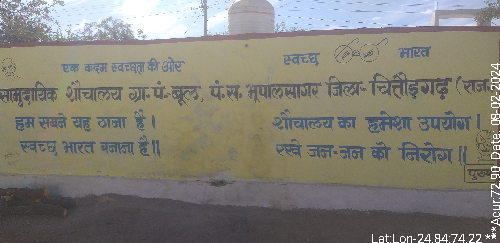 एक कदम स्वच्छता की ओर
स्वच्छ भारत
सामुदायिक शौचालय ग्रा॰पं॰बूल, पं॰स॰ भूपालसागर जिला- चित्तौड़गढ़ (राज॰
हम सबने यह ठाना है।
स्वच्छ भारत बनाना है॥
शौचालय का हमेशा उपयोग।
रखे जन-जन को निरोग॥
Lat:Lon-24.84:74.22